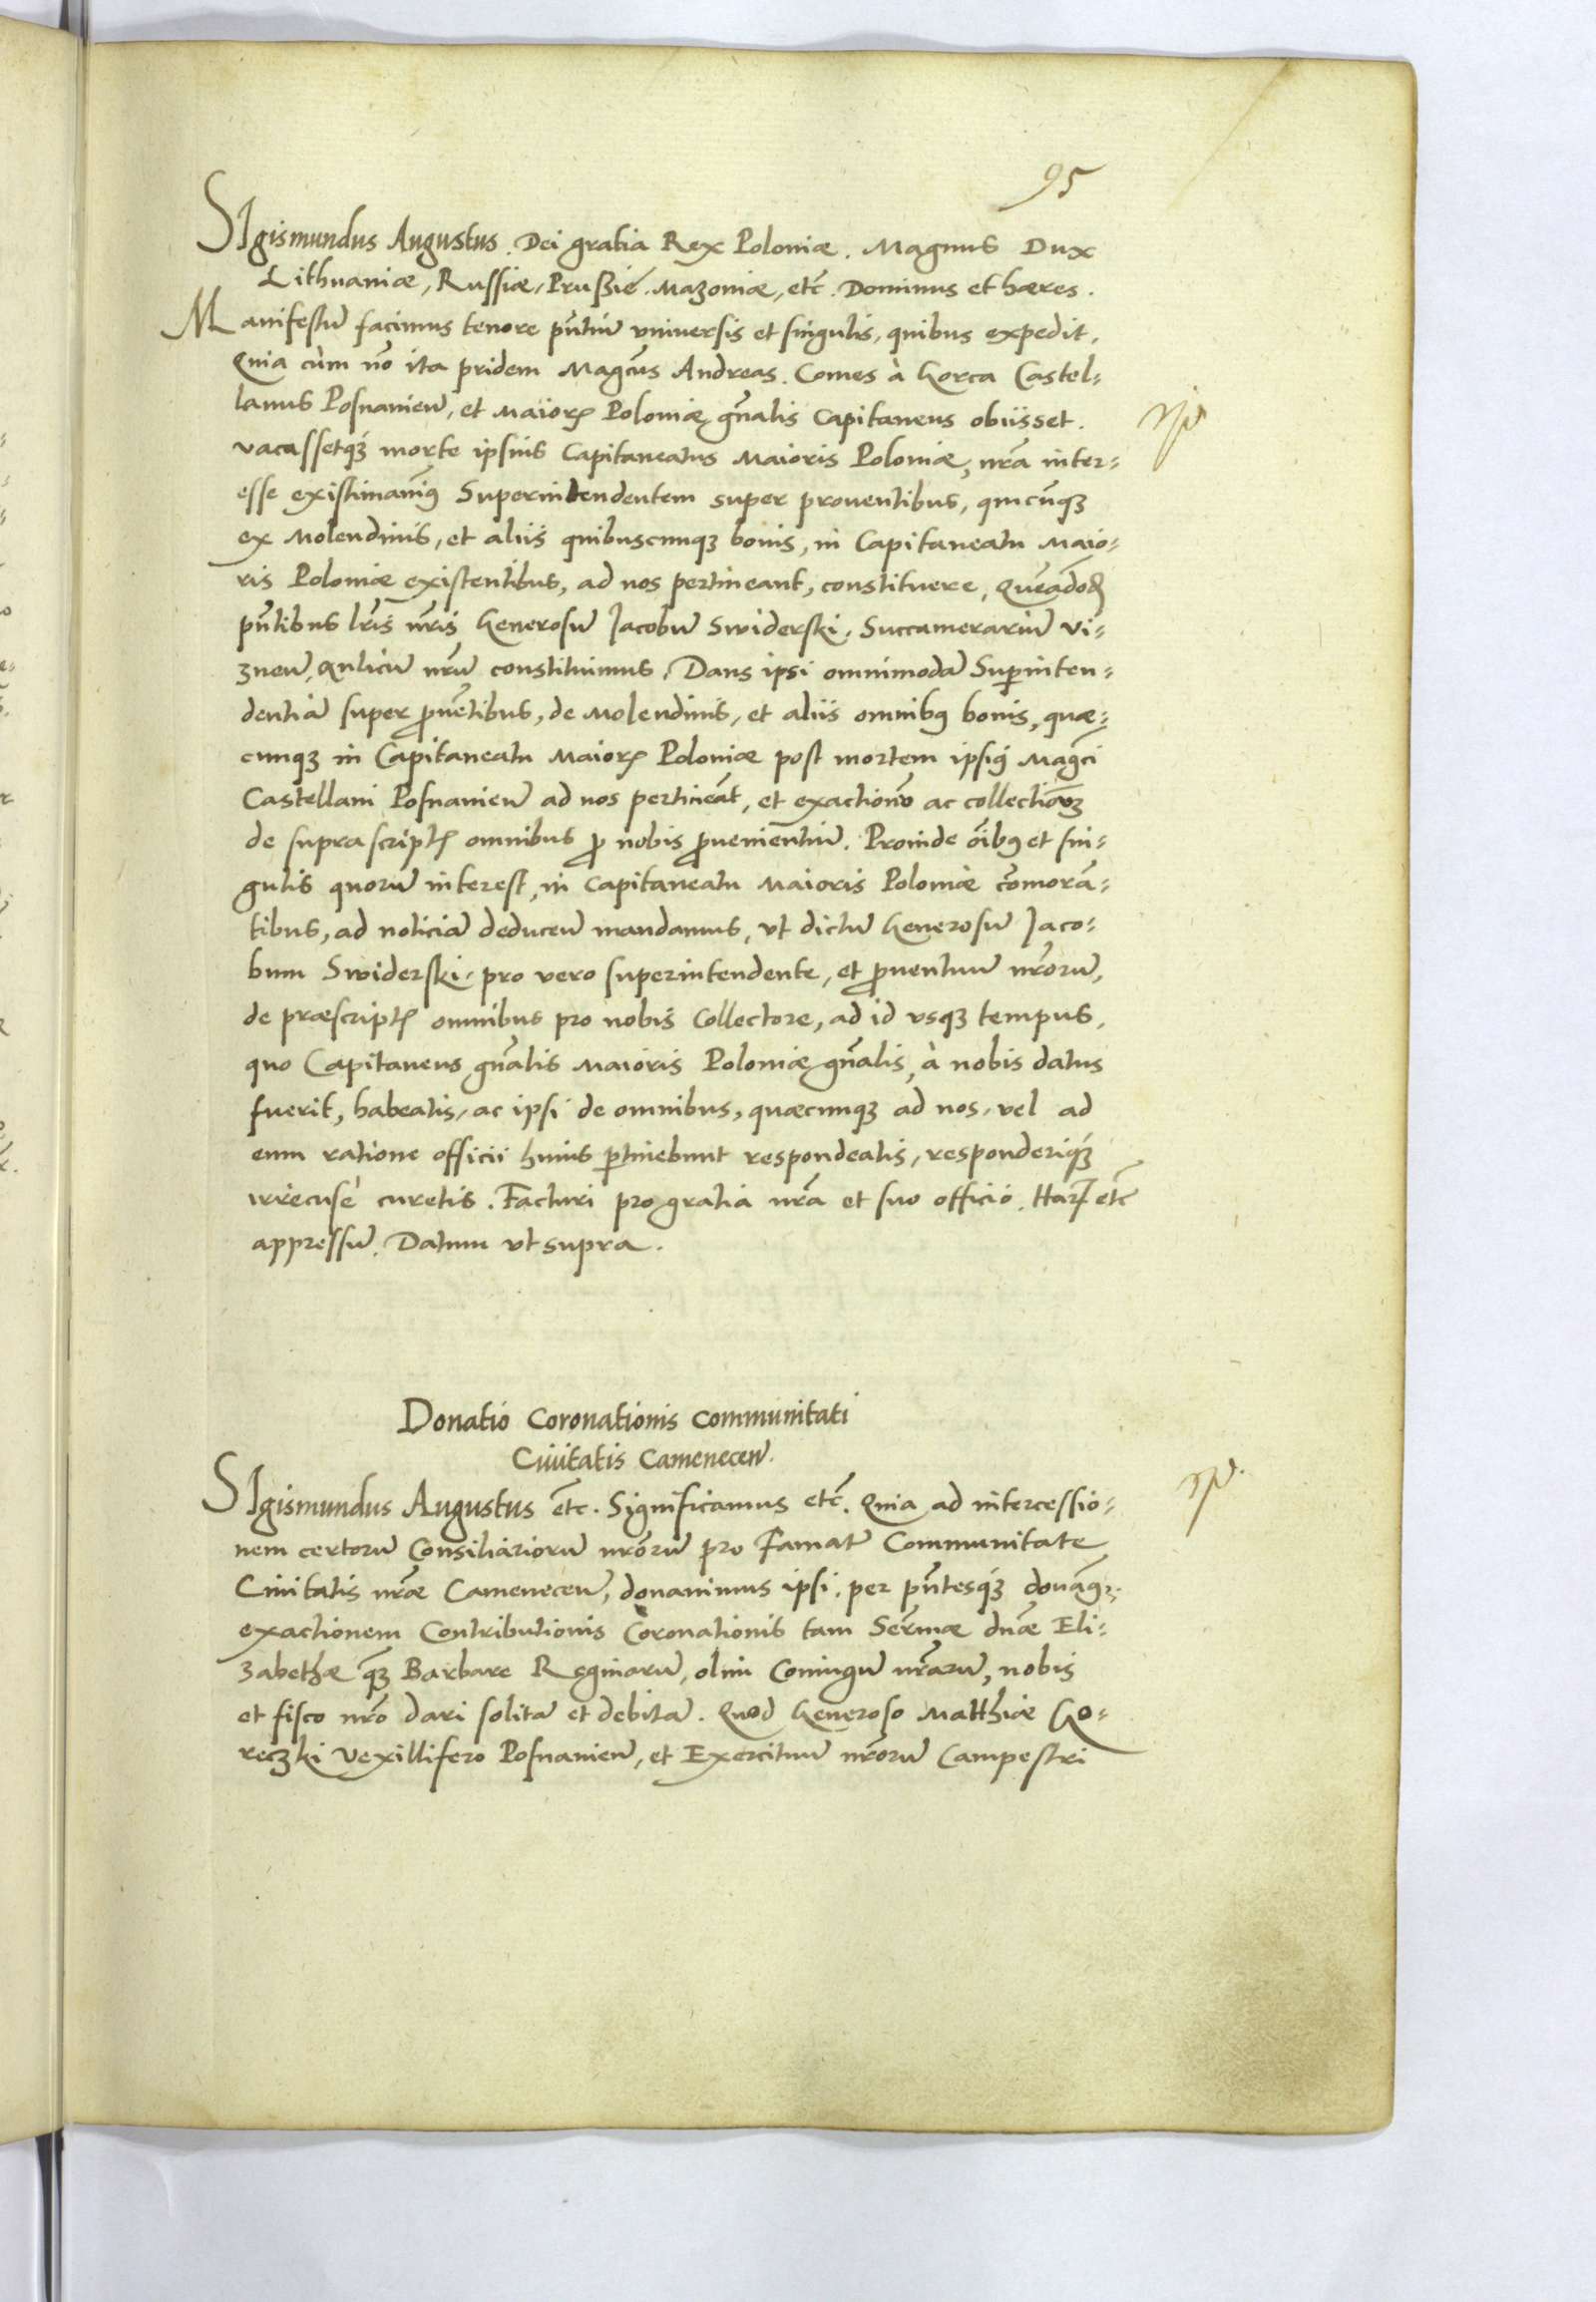 95
SIgismundus Augustus. Dei gratia Rex Poloniæ. Magnus Dux
Lithuaniæ, Russiæ, Prußię. Mazoniæ, etc̃. Dominus et hæres.
Manifestũ facimus tenore pñtiũ vniversis et singulis, quibus expedit.
Quia cùm nõ ita pridem Magcũs Andreas. Comes à Gorca Castel=
lanus Posnanieñ, et Maioris Poloniæ gñalis Capitaneus obiisset.
vacassetq́ȝ morte ipsius Capitaneatus Maioris Poloniæ, nrã inter=
esse existimauim9 Superintendentem super prouentibus, quicũqȝ
ex Molendinis, et aliis quibuscunqȝ bonis, in Capitaneatu Maio=
ris Poloniæ existentibus, ad nos pertineant, constituere, Quẽadmodũ
pñtibus lrĩs nrĩs Generosũ Jacobũ Swiderski. Succamerariũ Vi=
zneñ, Aulicũ nrũm constituimus. Dans ipsi omnimodã Suꝑinten=
dentiã super ꝓuẽtibus, de Molendinis, et aliis omnib9 bonis, quæ=
cunqȝ in Capitaneatu Maioris Poloniæ post mortem ipsi9 Magc̃i
Castellani Posnanieñ ad nos pertineãt, et exactionẽ ac collectionẽ
de suprascriptis omnibus ꝓ nobis ꝓuenientiũ. Proinde õib9 et sin=
gulis quorũ interest, in Capitaneatu Maioris Poloniæ cõmorã=
tibus, ad noticiã deduceñ mandamus, vt dictũ Generosũ Jaco=
bum Swiderski. pro vero superintendente, et ꝓuentuũ nrõrũ,
de præscriptis omnibus pro nobis Collectore, ad id vsqȝ tempus,
quo Capitaneus gñalis Maioris Poloniæ gñalis, à nobis datus
fuerit, habeatis, ac ipsi de omnibus, quæcunqȝ ad nos, vel ad
eum ratione officii huius ꝑtinebunt respondeatis, responderiq́ȝ
irrecusè curetis. Facturi pro gratia nrã et suo officio. Harȝ etc̃
appressũ. Datum vt supra.
Donatio Coronationis Communitati
Ciuitatis Cameneceñ.
SIgismundus Augustus etc̃. Significamus etc̃. Quia ad intercessio=
nem certorũ Consiliariorũ nrõrũ pro Famatã Communitate
Ciuitatis nrãe Cameneceñ, donauimus ipsi. per pñtesq́ȝ donãm9.
exactionem Contributionis Coronationis tam Serẽmæ dnãe Eli=
zabethæ q̃ȝ Barbare Reginarũ, olim Coniugũ nrãrũ, nobis
et fisco nrõ dari solitã et debitã. Quod Generoso Matthiæ Go=
reczki Vexillifero Posnanieñ, et Exercituũ nrõrũ Campestri